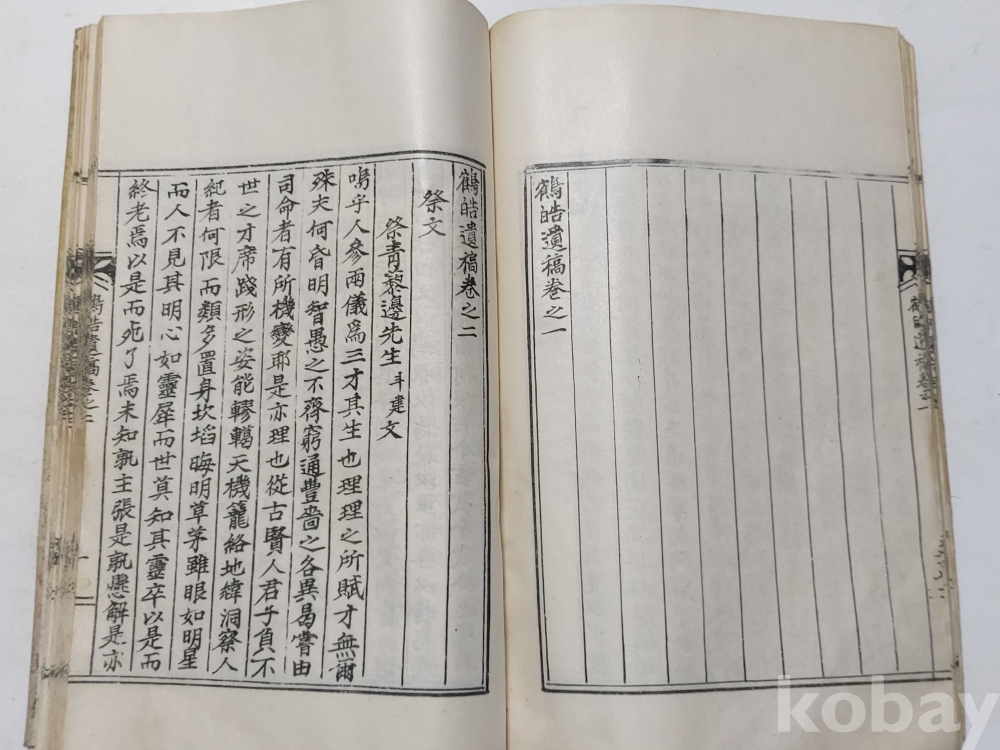 鶴皓遺稿卷之一
鶴皓遺稿卷之二
祭文
祭靑藜邊先生斗建文
嗚乎人參兩儀爲三才其生也理理之所賦才無爾
殊夫何昏明智愚之不齊窮通豐嗇之各異曷嘗由
司命者有所機變耶是亦理也從古賢人君子負不
世之才席踐形之姿能轇轕天機籠絡地緯洞察人
紀者何限而類多置身坎埳晦明草茅雖眼如明星
而人不見其明心如靈犀而世莫知其靈卒以是而
終老焉以是而死了焉未知孰主張是孰懸解是亦
鶴皓遺稿卷之二
kobay